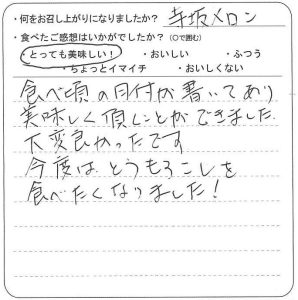 ・何をお召し上がりになりましたか？ 寺坂メロン
・食べたご感想はいかがでしたか？（○で囲む）
・とっても美味しい！ ・おいしい ・ふつう
・ちょっとイマイチ ・おいしくない
食べ頃の日付が書いてあり
美味しく頂くことができました
大変良かったです
今度はとうもろこしを
食べたくなりました！